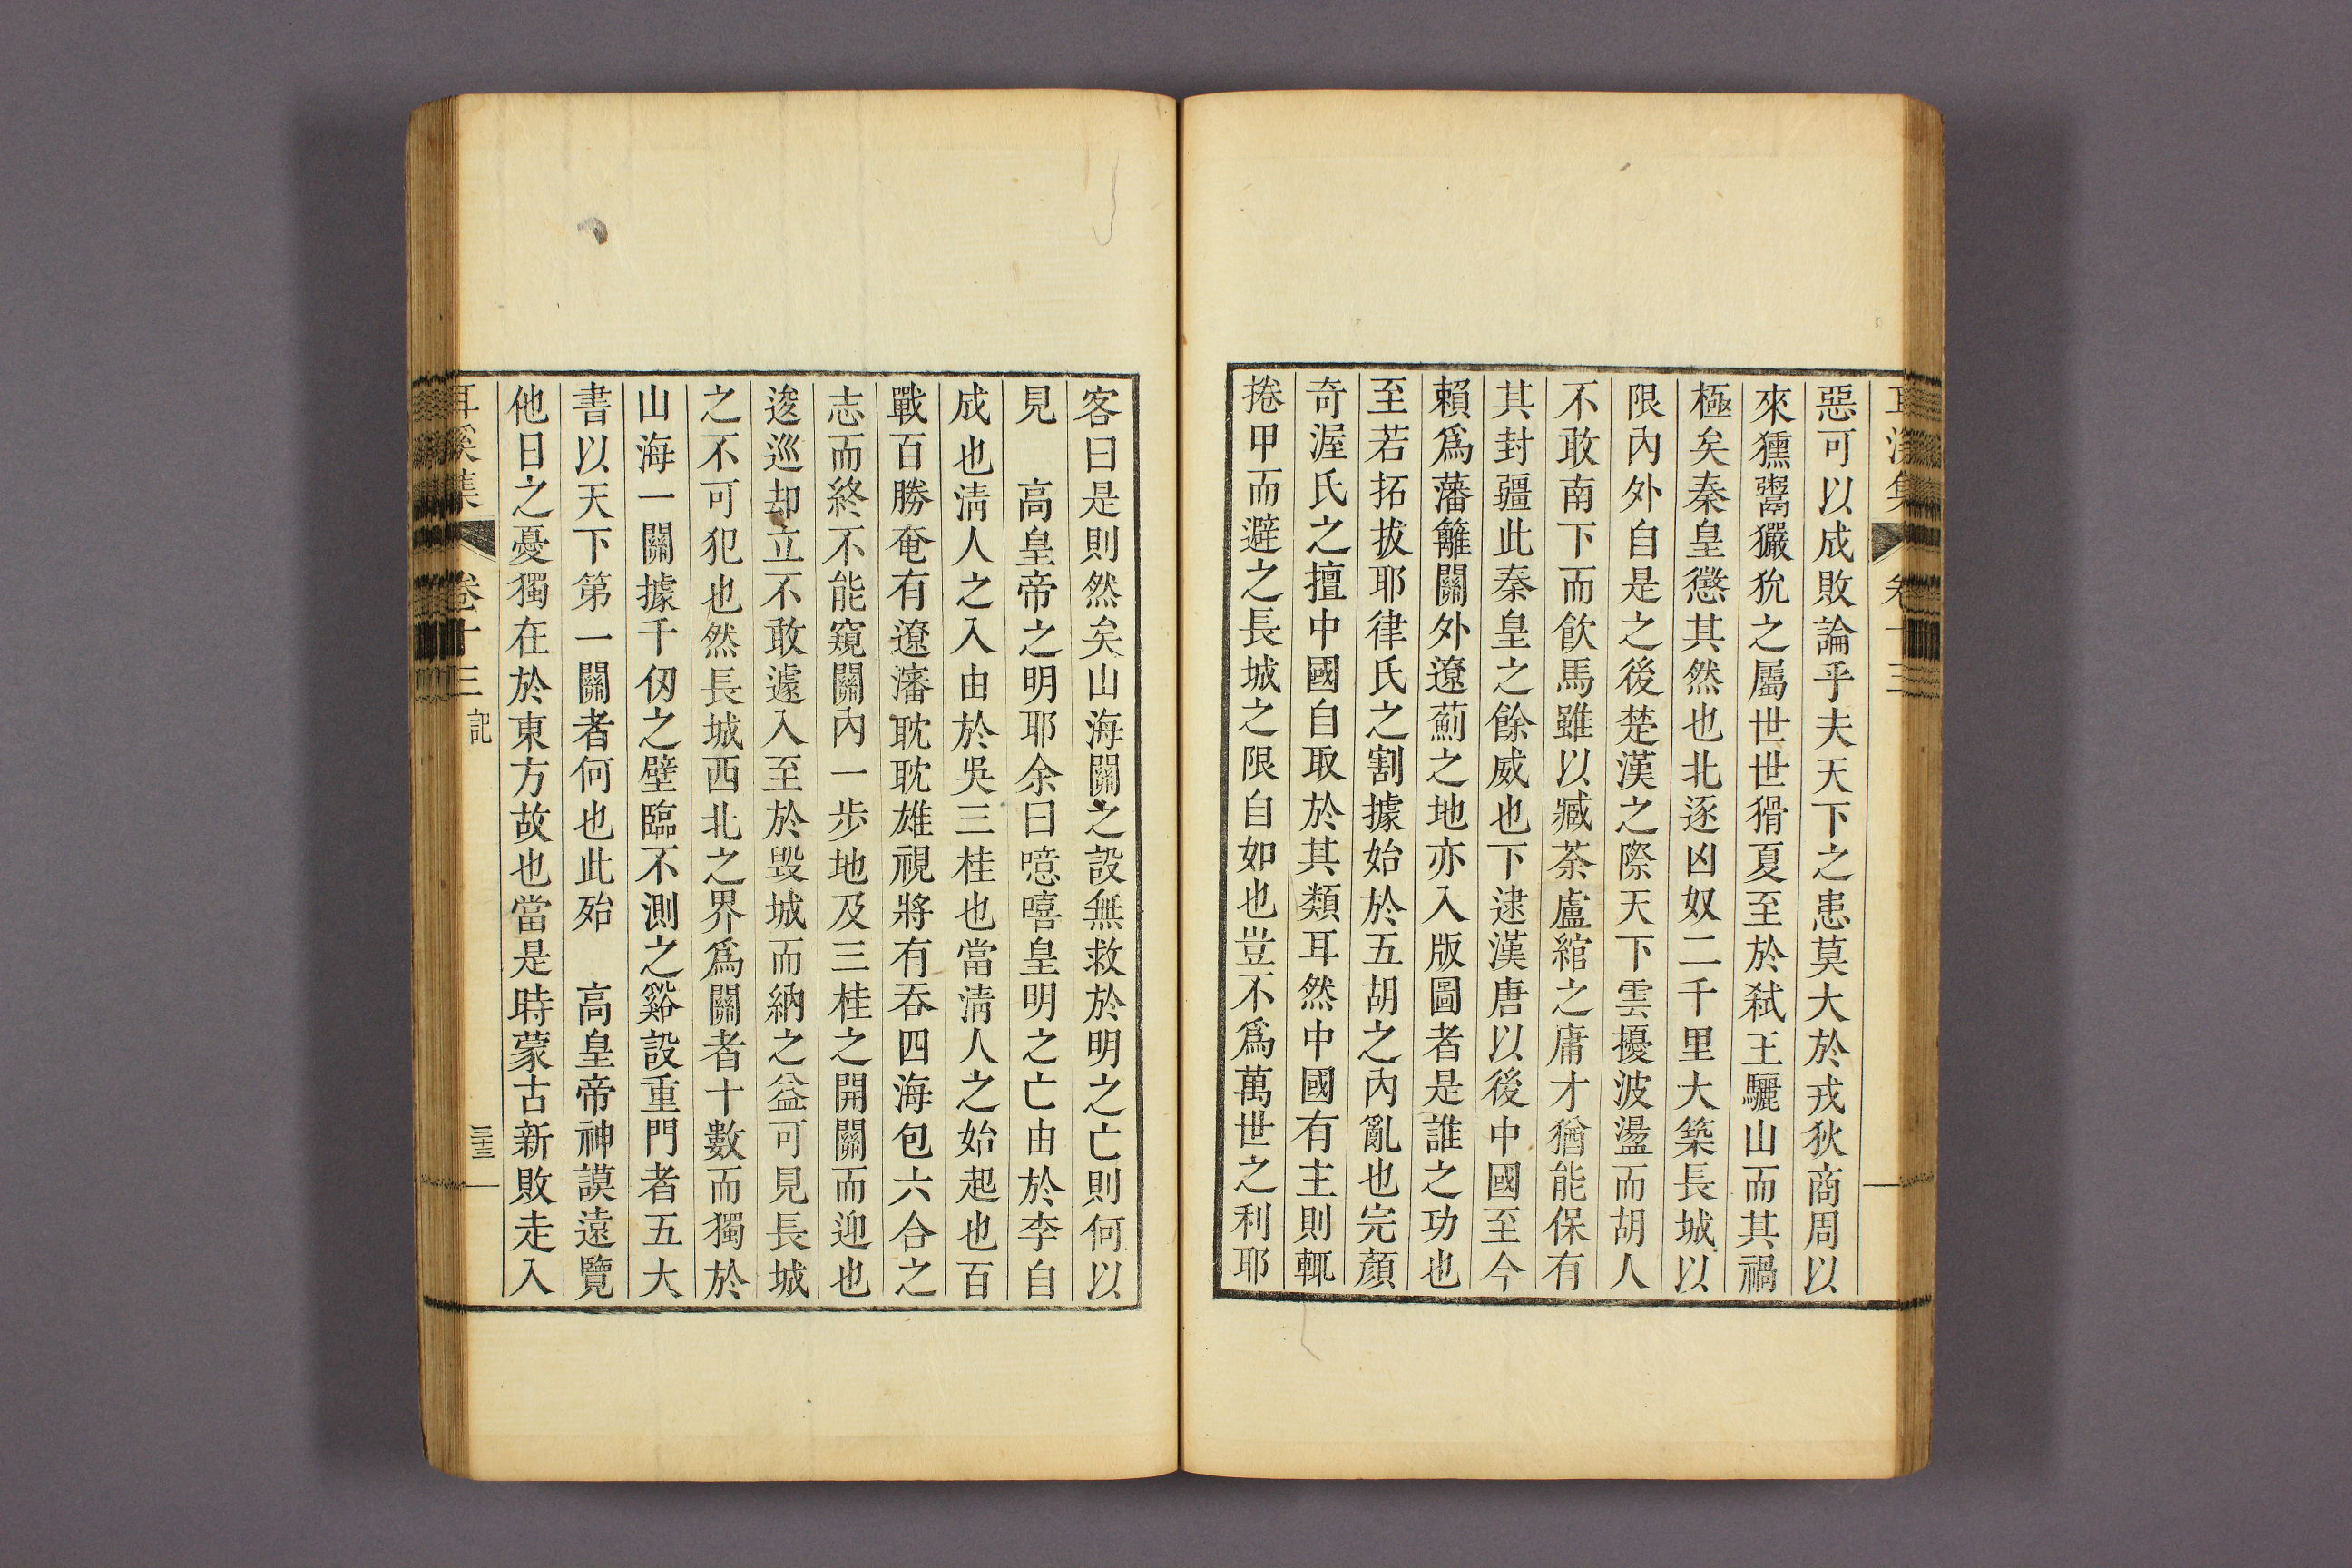 惡可以成敗論乎夫天下之患莫大於戎狄商周以
來獯鬻玁狁之屬世世猾夏至於弑王驪山而其禍
極矣秦皇懲其然也北逐凶奴二千里大築長城以
限內外自是之後楚漢之際天下雲擾波盪而胡人
不敢南下而飮馬雖以臧荼盧綰之庸才猶能保有
其封疆此秦皇之餘威也下逮漢唐以後中國至今
賴爲藩籬關外遼薊之地亦入版圖者是誰之功也
至若拓拔耶律氏之割據始於五胡之內亂也完顏
奇渥氏之擅中國自取於其類耳然中國有主則輒
捲甲而避之長城之限自如也豈不爲萬世之利耶
客曰是則然矣山海關之設無救於明之亡則何以
見 高皇帝之明耶余曰噫嘻皇明之亡由於李自
成也淸人之入由於吳三桂也當淸人之始起也百
戰百勝奄有遼瀋耽耽雄視將有吞四海包六合之
志而終不能窺關內一步地及三桂之開關而迎也
逡巡却立不敢遽入至於毁城而納之益可見長城
之不可犯也然長城西北之界爲關者十數而獨於
山海一關據千仞之壁臨不測之谿設重門者五大
書以天下第一關者何也此殆 高皇帝神謨遠覽
他日之憂獨在於東方故也當是時蒙古新敗走入
耳溪集 卷十三 記 三十三